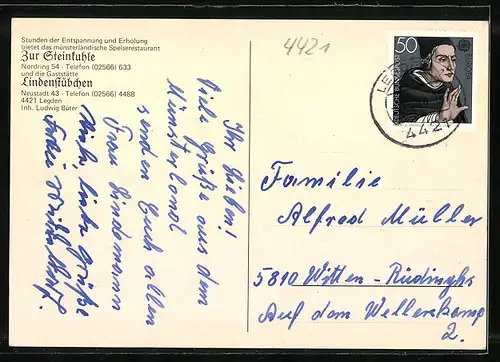 Stunden der Entspannung und Erholung
bietet das münsterländische Speiserestaurant
Zur Steinkuhle
Nordring 54 · Telefon (02566) 633
und die Gaststätte
Lindenstübchen
Neustadt 43 · Telefon (02566) 4488
4421 Legden
Inh. Ludwig Büter
4421
50
DEUTSCHE BUNDESPOST
4421
Ihr Lieben!
Viele Grüße aus dem
Münsterland
senden Euch allen
Frau Lindemann
liebe Grüße
Familie
Alfred Müller
5810 Witten - Rüdinghs
Auf dem Wellerskamp
2.